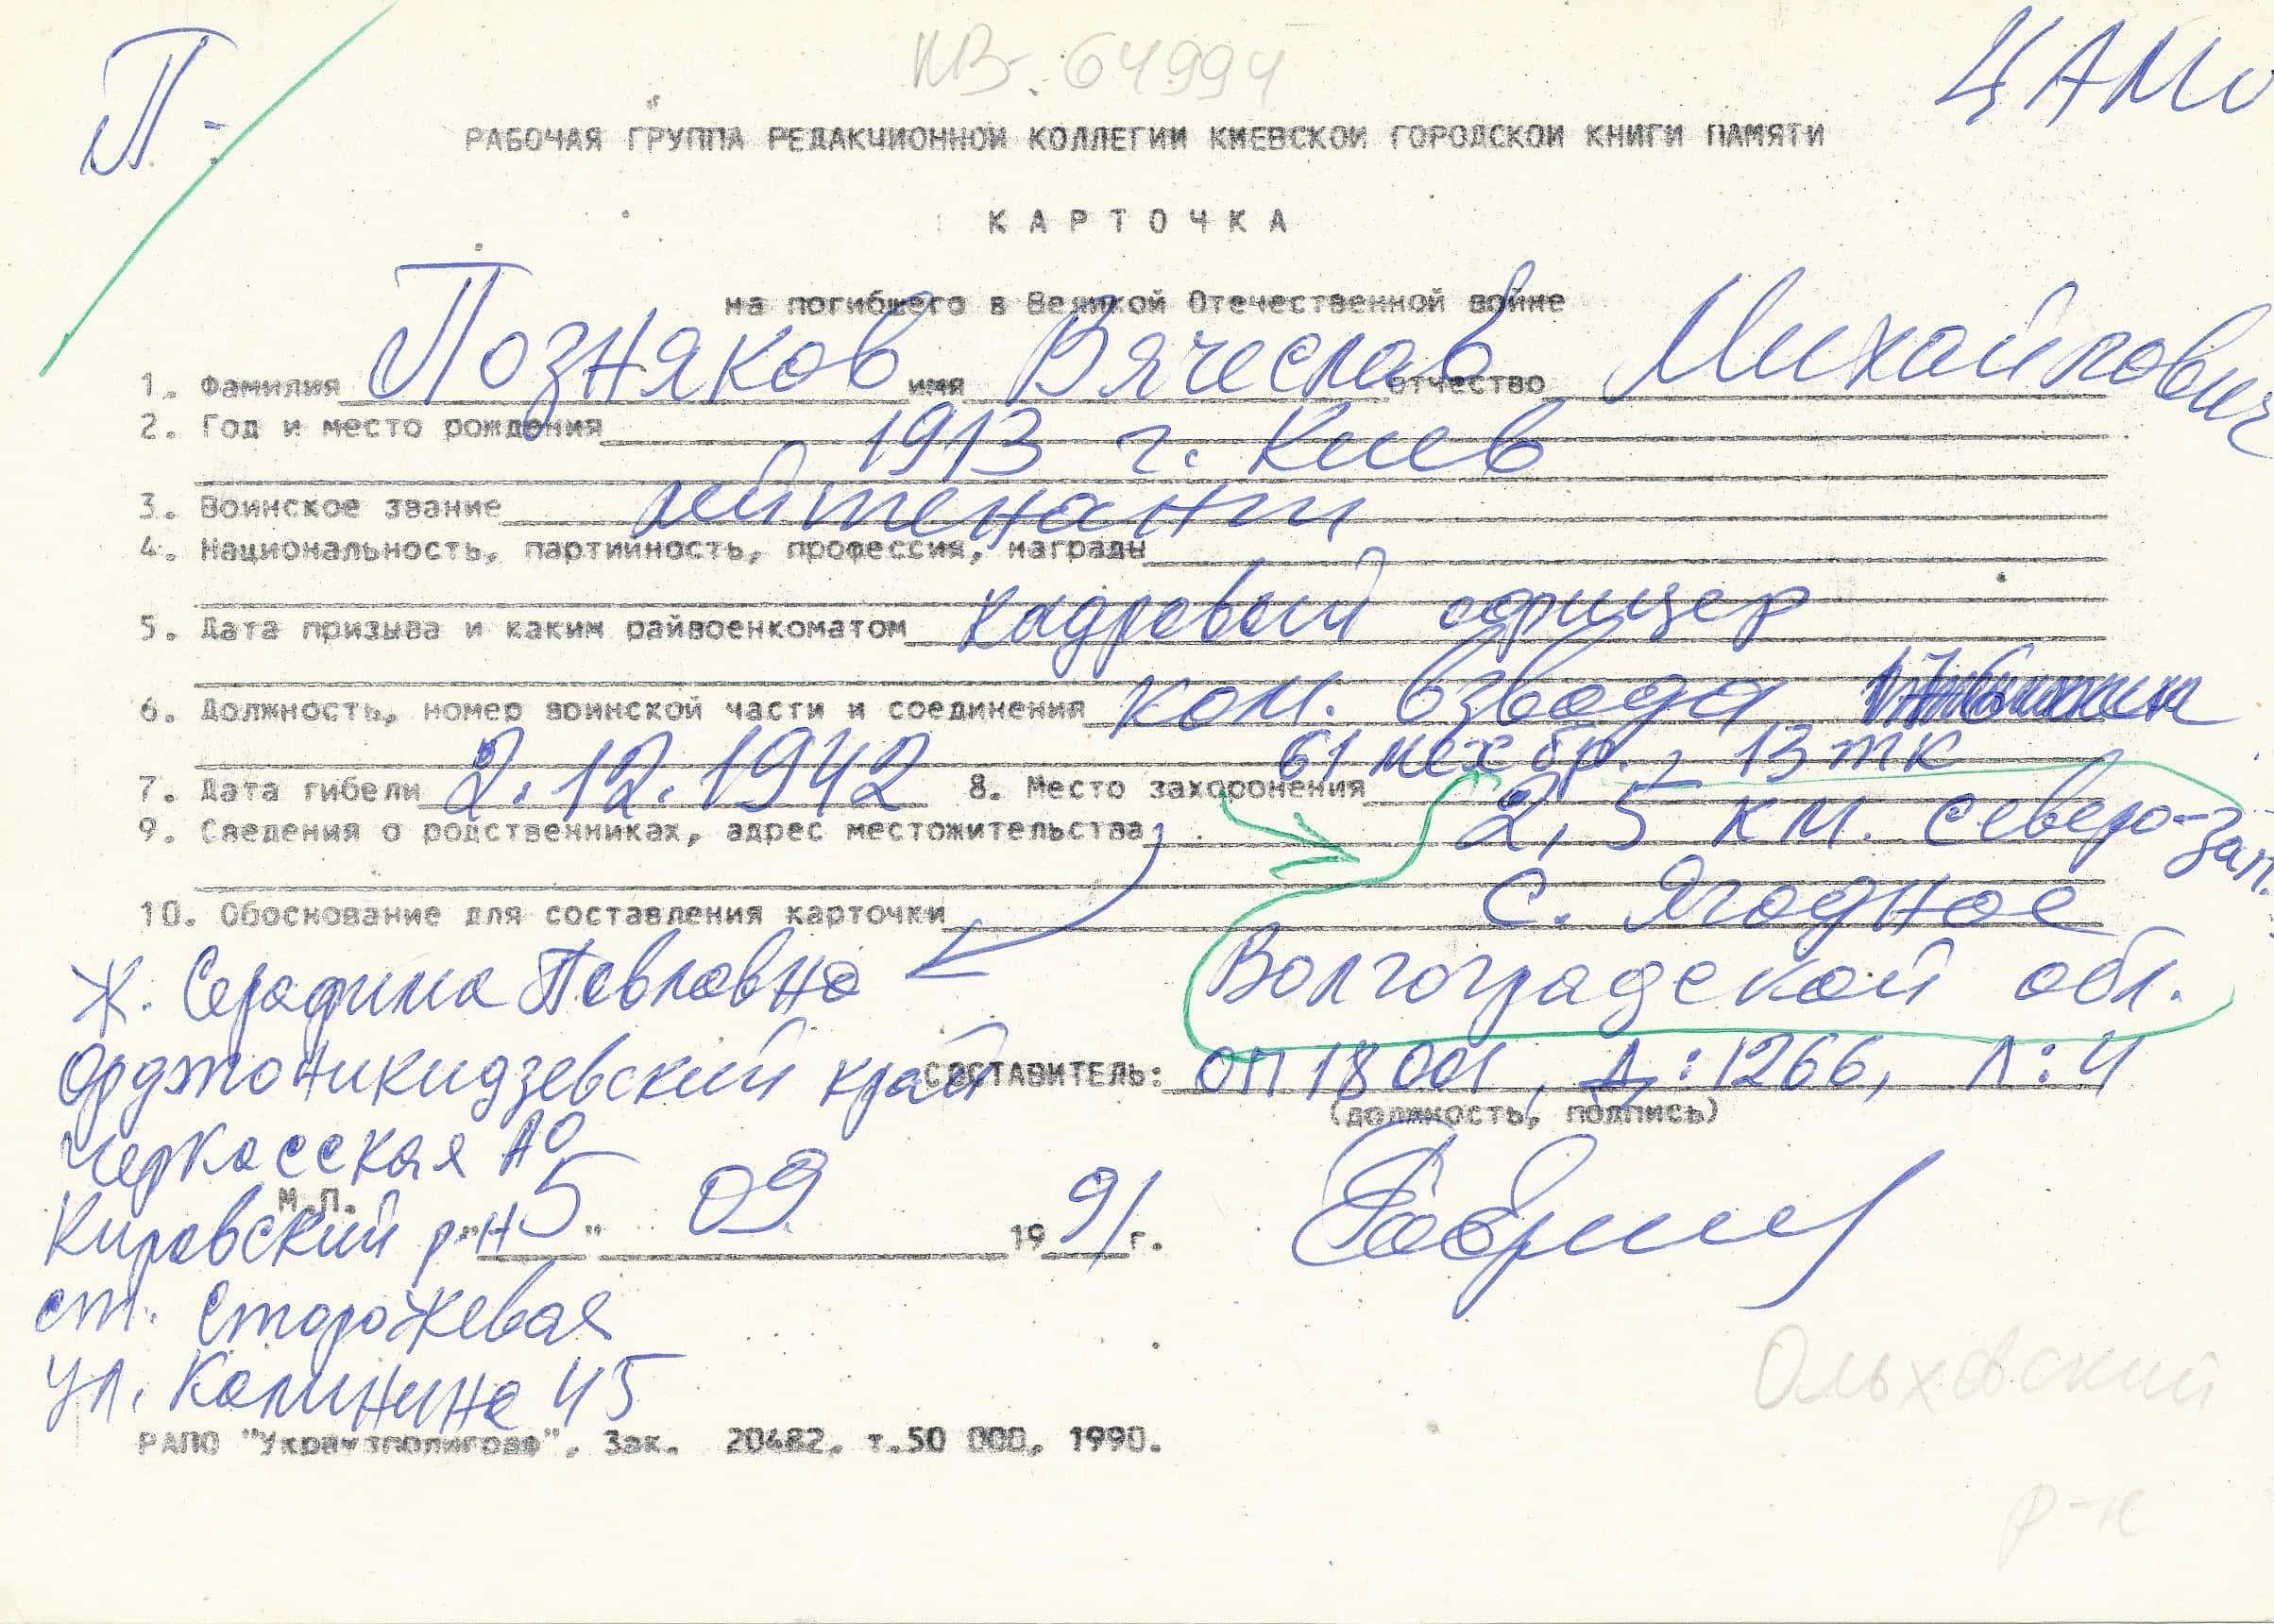 КВ-64994
П-
ЦАМО
РАБОЧАЯ ГРУППА РЕДАКЦИОННОЙ КОЛЛЕГИИ КИЕВСКОЙ ГОРОДСКОЙ КНИГИ ПАМЯТИ
КАРТОЧКА
на погибшего в Великой Отечественной войне
1. Фамилия Позняков имя Вячеслав отчество Михайлович
2. Год и место рождения 1913 г. Киев
3. Воинское звание лейтенант
4. Национальность, партийность, профессия, награды
5. Дата призыва и каким райвоенкоматом кадровый офицер
6. Должность, номер воинской части и соединения ком. взвода
61 мех бр., 13 тк
7. Дата гибели 2.12.1942 8. Место захоронения
2,5 км. северо-зап.
9. Сведения о родственниках, адрес местожительства
с. Ягодное
10. Обоснование для составления карточки
Волгоградской обл.
ж. Серафима Павловна
Орджоникидзевский край
СОСТАВИТЕЛЬ: оп 18001, д:1266, л:4
(должность, подпись)
Черкасская АО
М.П.
Кировский р-н
"5" 09 1991 г.
ст. Сторожевая
ул. Калинина 45
Ольховский
р-н
РАПО "Укрвузполиграф", Зак. 20482, т.50 000, 1990.